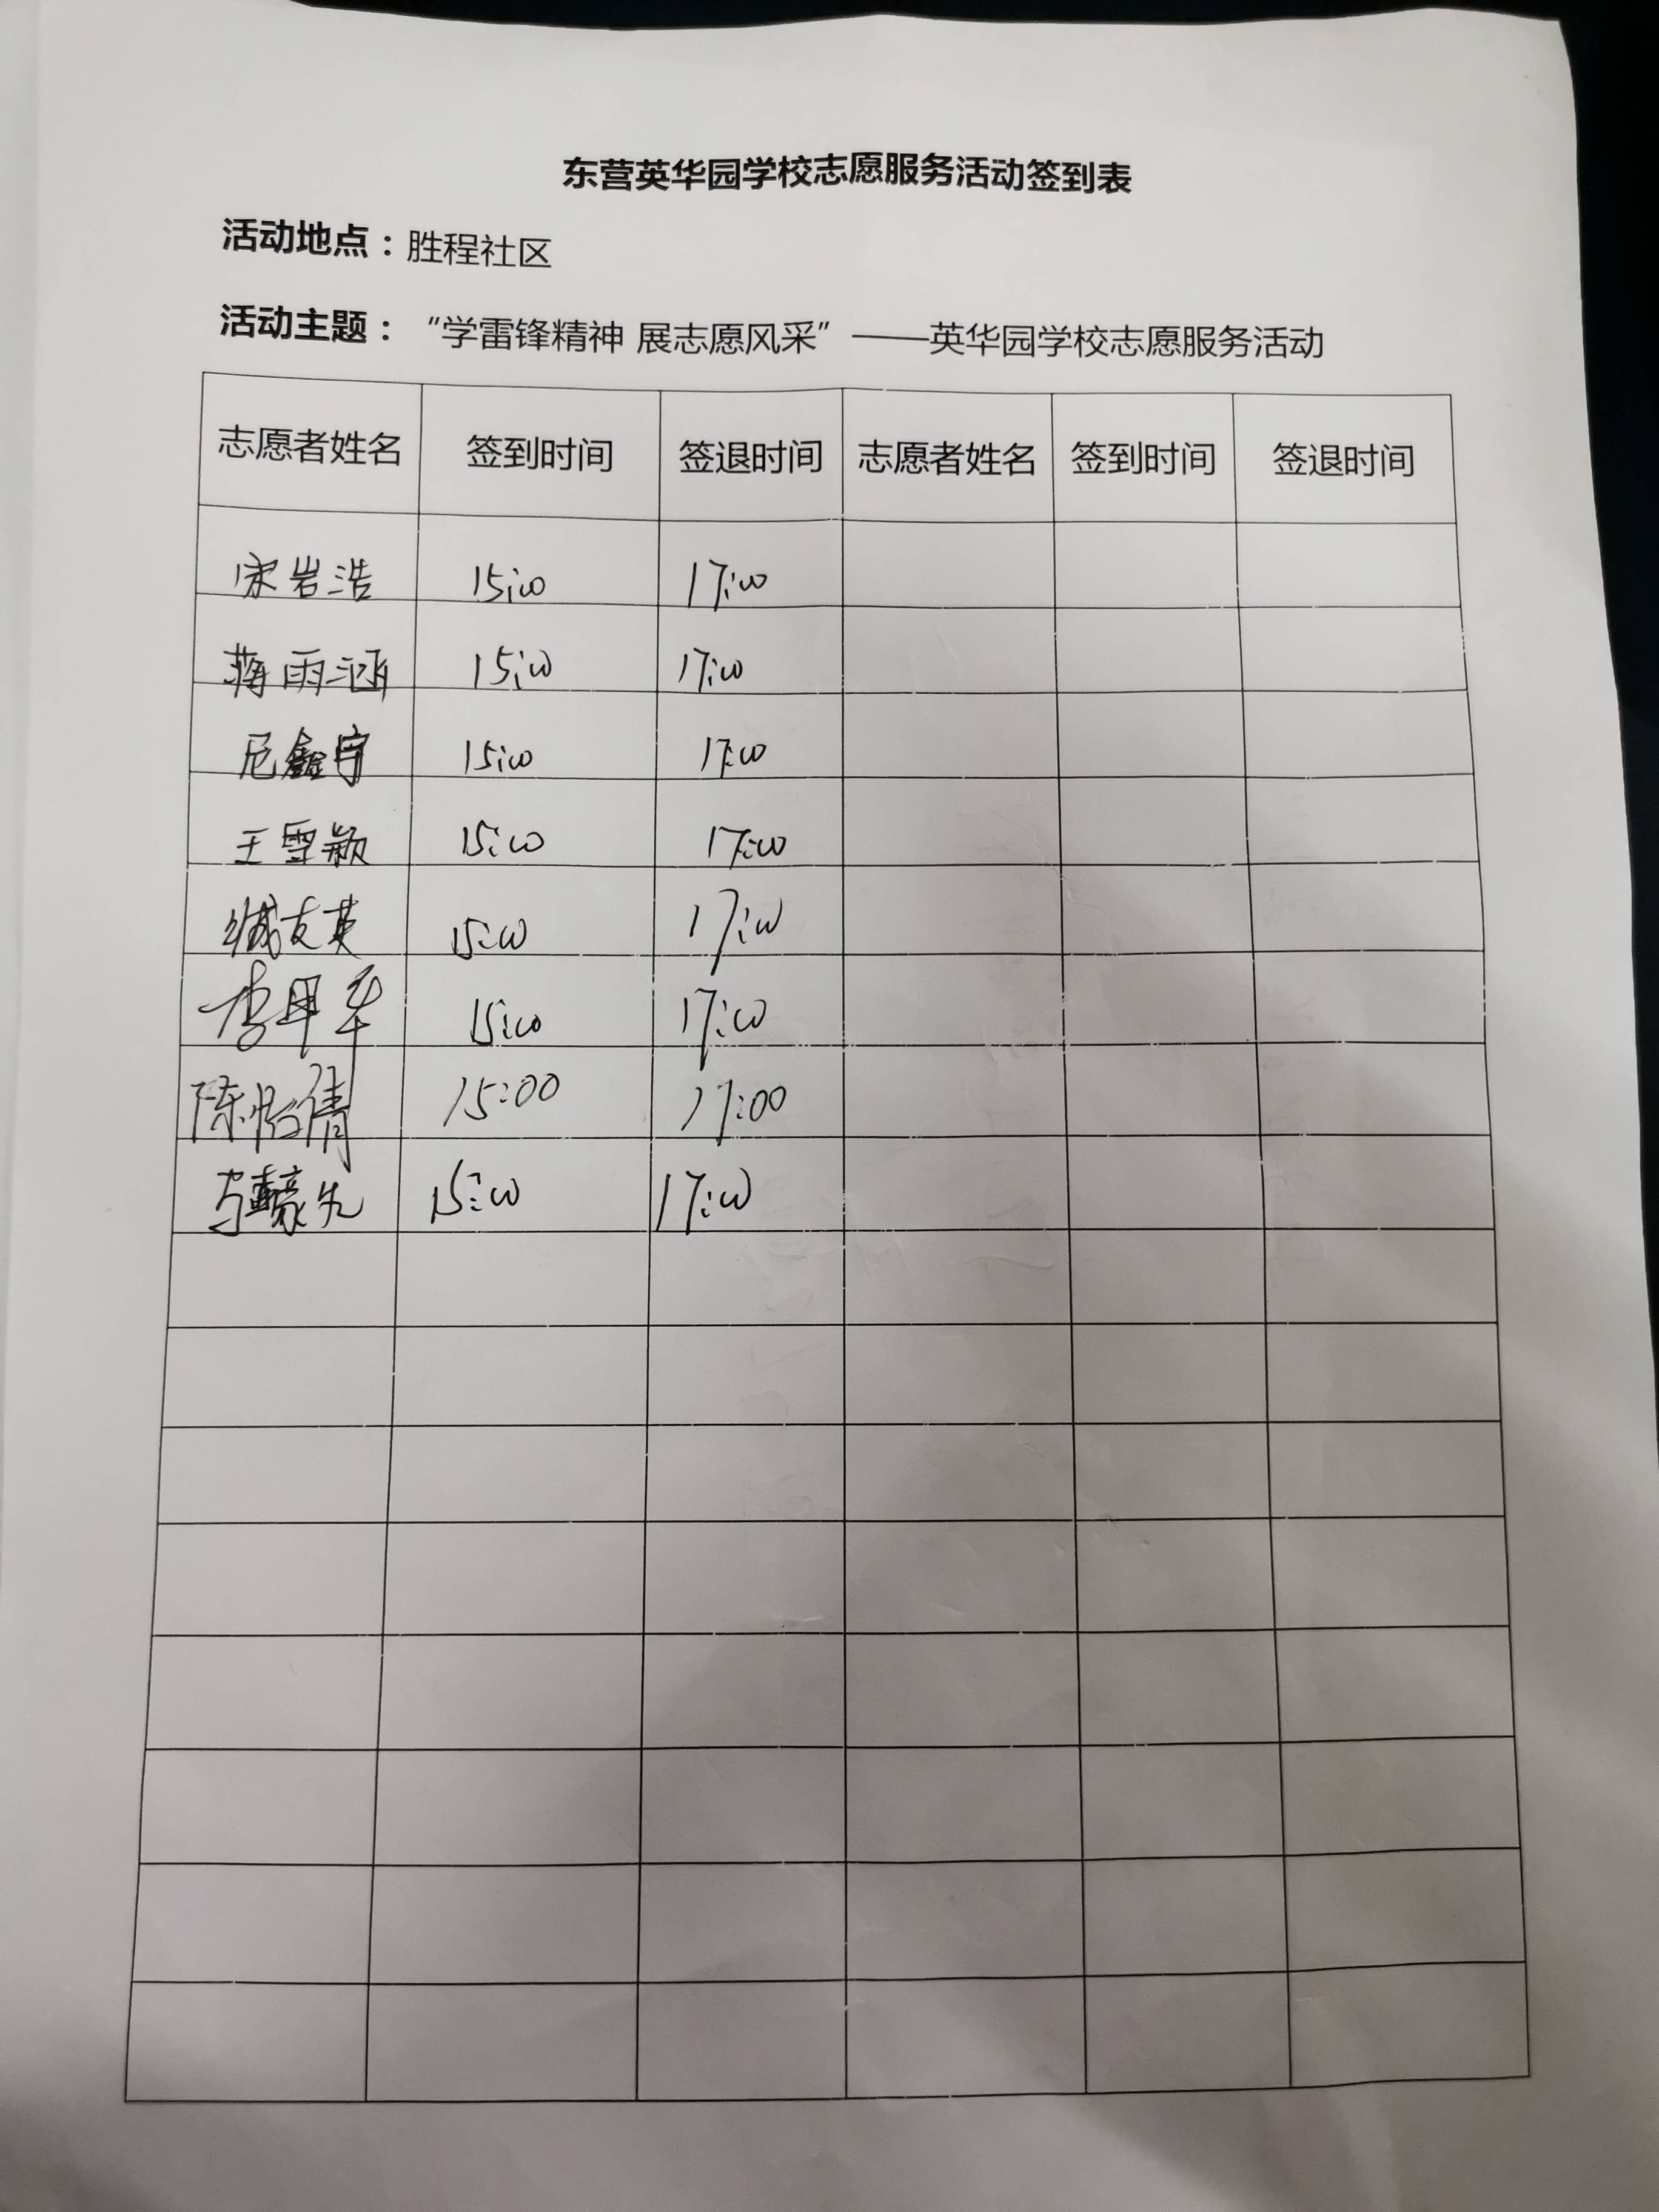 东营英华园学校志愿服务活动签到表
活动地点：胜程社区
活动主题：“学雷锋精神 展志愿风采”——英华园学校志愿服务活动
志愿者姓名 签到时间 签退时间 志愿者姓名 签到时间 签退时间
宋岩浩 15:00 17:00
蒋雨涵 15:00 17:00
尼鑫宇 15:00 17:00
王雪颖 15:00 17:00
臧友英 15:00 17:00
15:00 17:00
陈怡倩 15:00 17:00
15:00 17:00